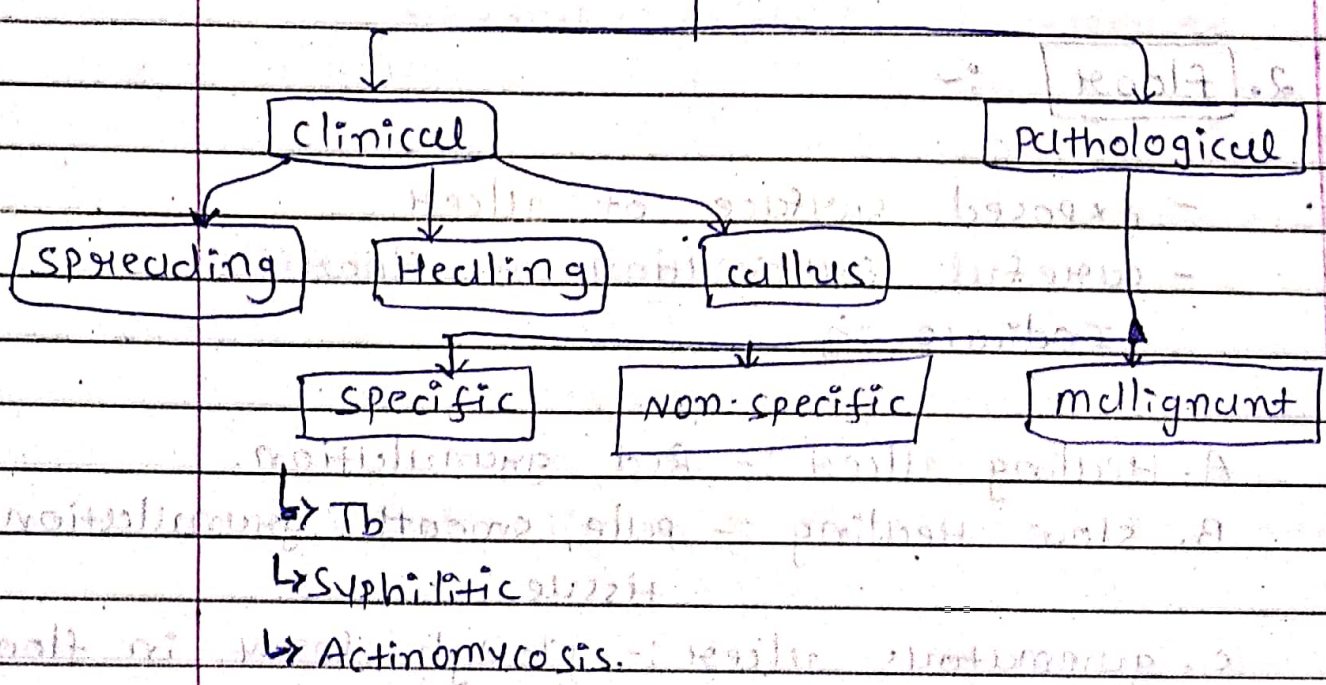 clinical
pathological
spreading
Healing
callus
specific
Non-specific
malignant
Tb
Syphilitic
Actinomycosis.